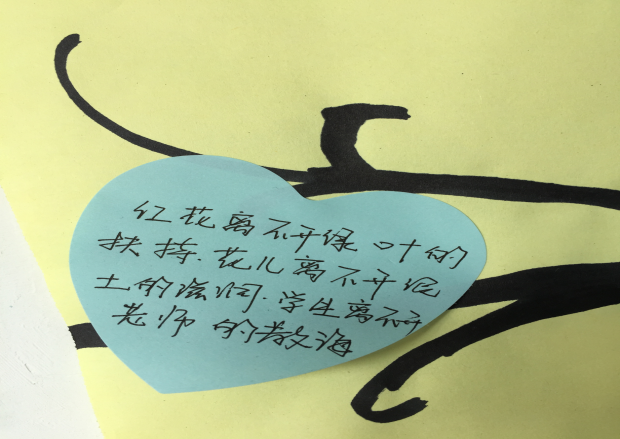 红花离不开绿叶的
扶持.花儿离不开泥
土的滋润.学生离不开
老师的教诲